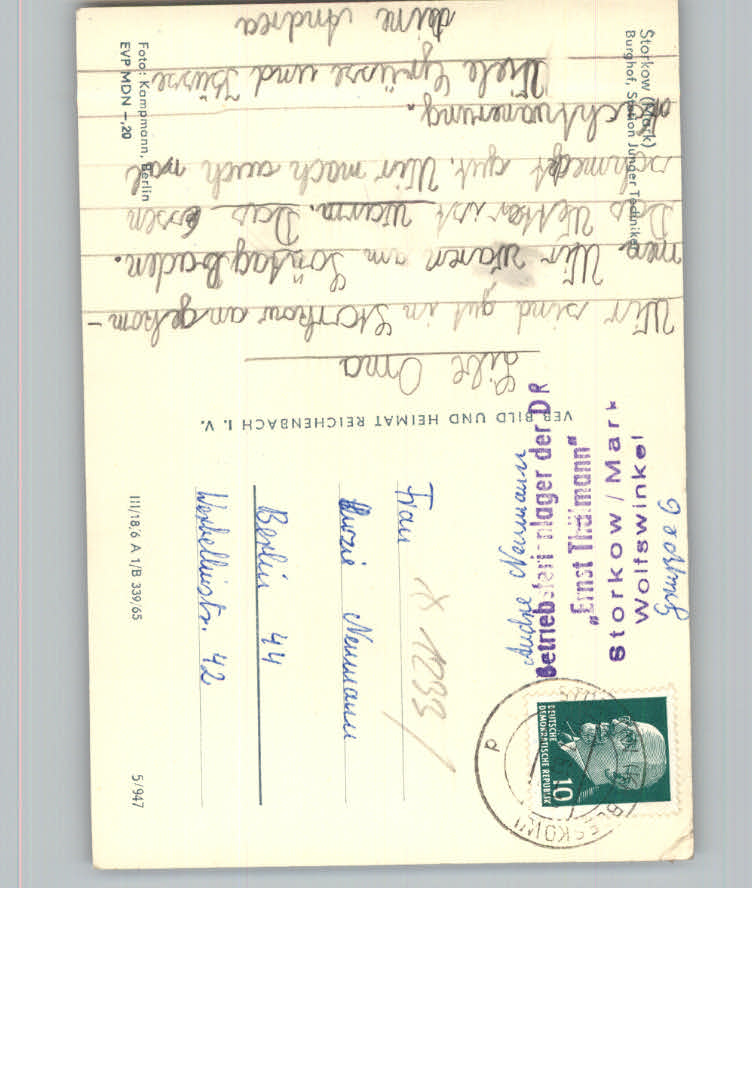 Storkow (Mark)
Burghof, Station Junger Techniker
Liebe Oma
Wir sind gut in Storkow angekom-
men. Wir waren am Sontag baden.
Das Wetter ist warm. Das essen
schmeckt gut. Wir mach auch mal
nachtwanerung.
Viele Grüsse und Küsse
deine Andrea
Foto: Kampmann, Berlin
EVP MDN -,20
VEB BILD UND HEIMAT REICHENBACH I. V.
DEUTSCHE
DEMOKRATISCHE REPUBLIK
10
BEESKOW 1
d
Neumann
Betriebsferienlager der DR
„Ernst Thälmann“
Storkow / Mark
Wolfswinkel
Gruppe 6
1233
Frau
Neumann
Berlin 44
Werbellinstr. 42
III/18/6 A 1/B 339/65
5/947